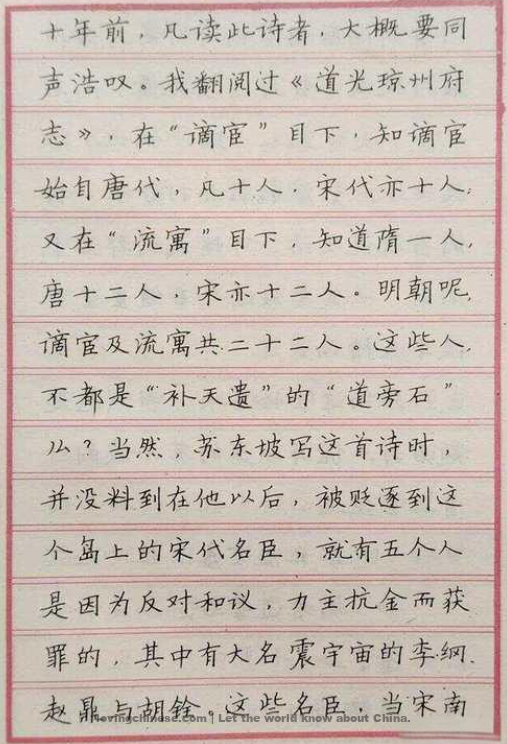 十年前，凡读此诗者，大概要同
声浩叹。我翻阅过《道光琼州府
志》，在“谪宦”目下，知谪宦
始自唐代，凡十人，宋代亦十人；
又在“流寓”目下，知道隋一人，
唐十二人，宋亦十二人。明朝呢，
谪宦及流寓共二十二人。这些人，
不都是“补天遗”的“道旁石”
么？当然，苏东坡写这首诗时，
并没料到在他以后，被贬逐到这
个岛上的宋代名臣，就有五个人
是因为反对和议，力主抗金而获
罪的，其中有大名震宇宙的李纲、
赵鼎与胡铨。这些名臣，当宋南
lovingchinese.com | Let the world know about China.